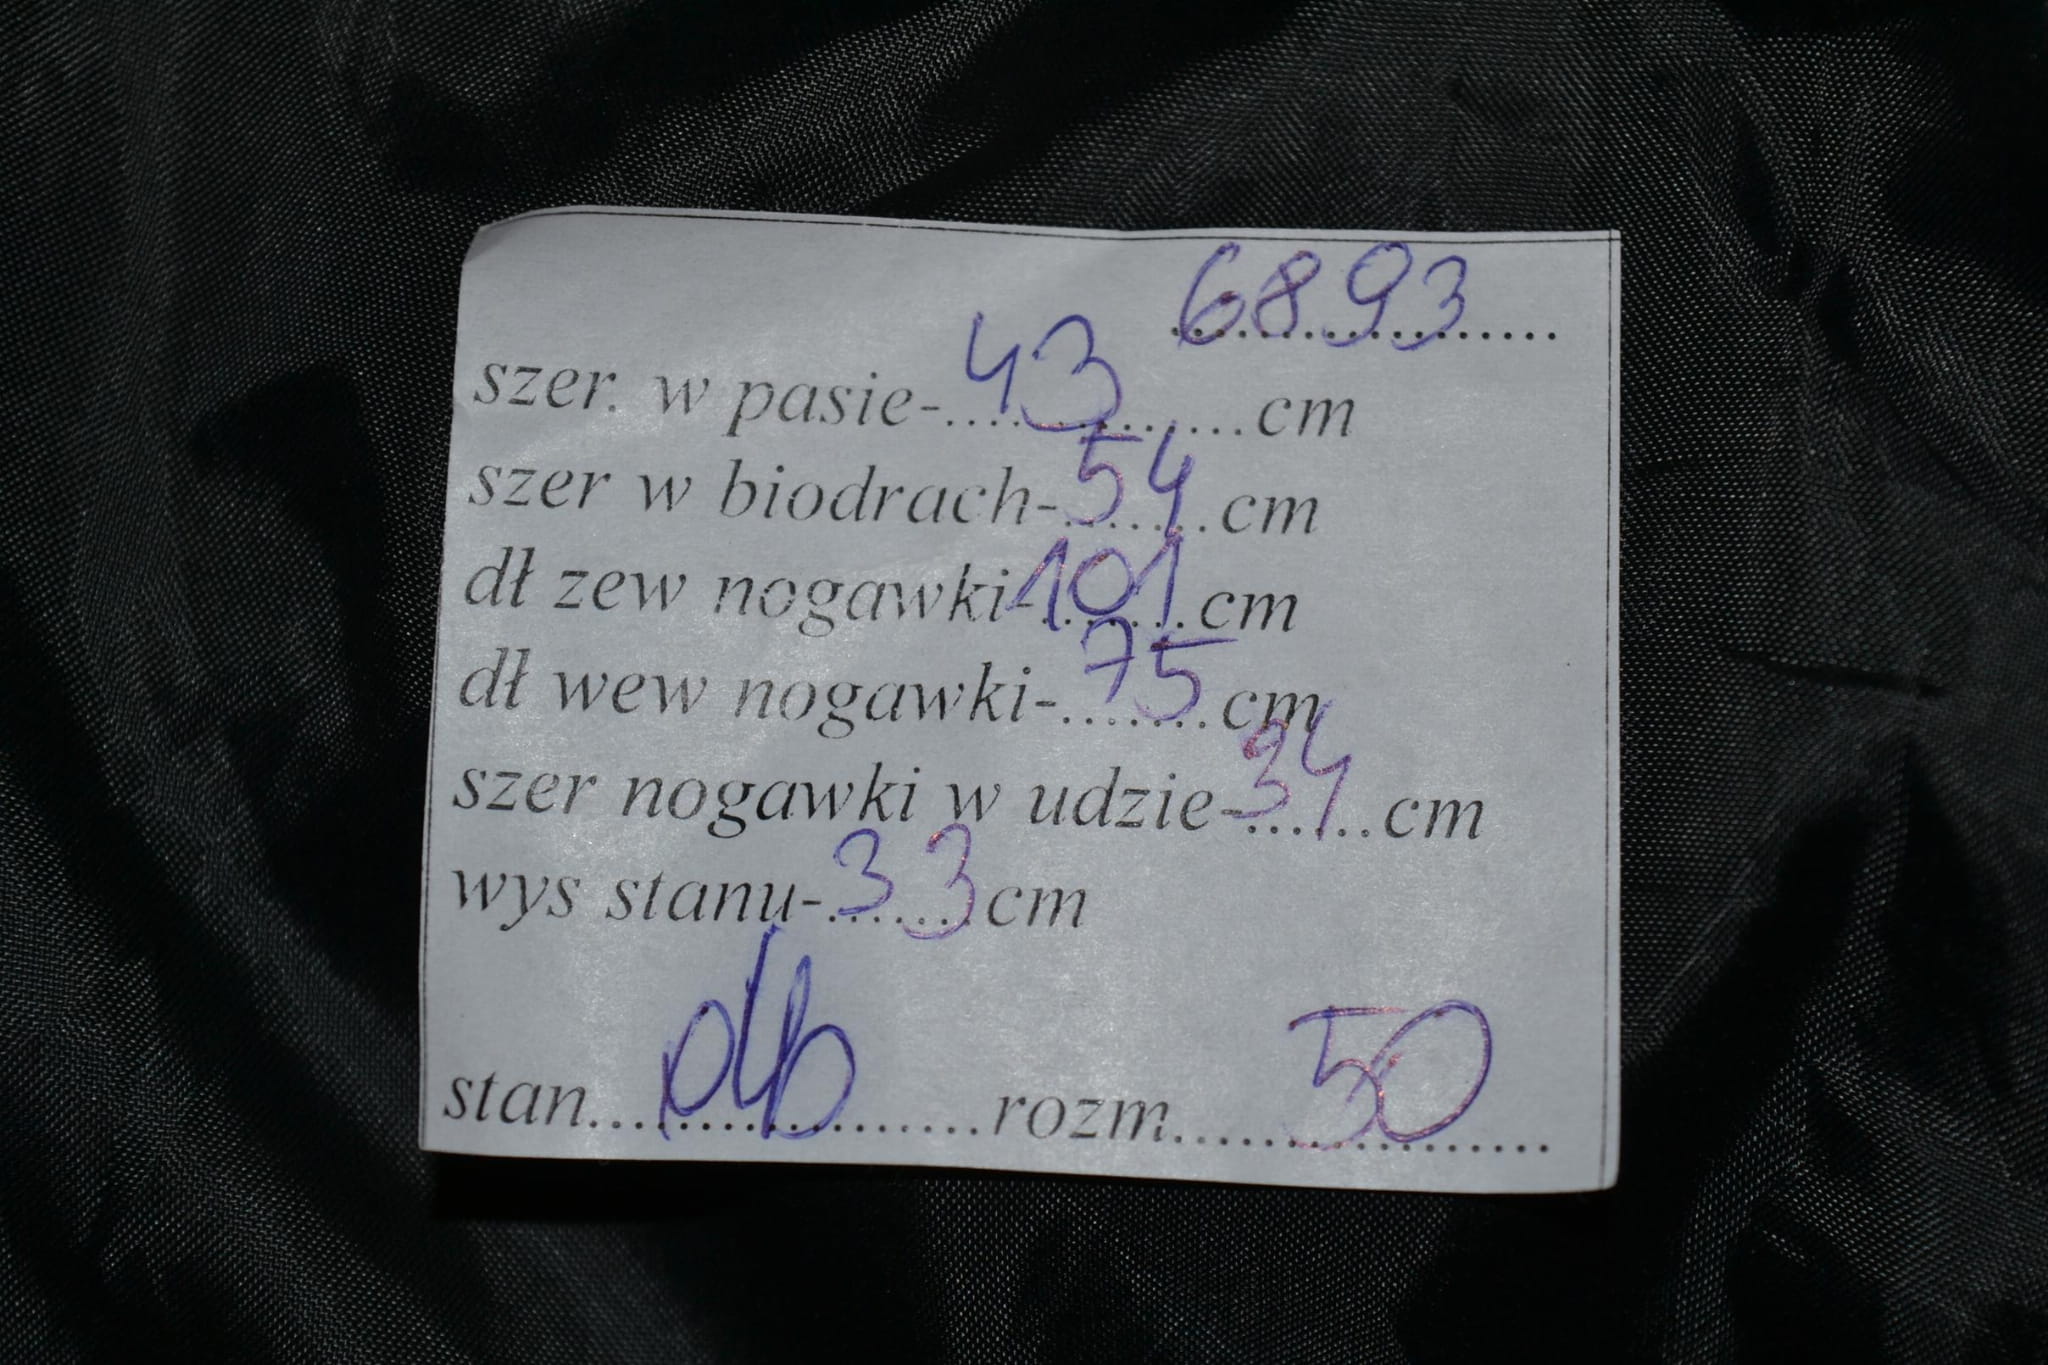 6893
szer. w pasie-43cm
szer w biodrach-54cm
dł zew nogawki-101cm
dł wew nogawki-75cm
szer nogawki w udzie-34cm
wys stanu-33cm
stan...db...rozm...50